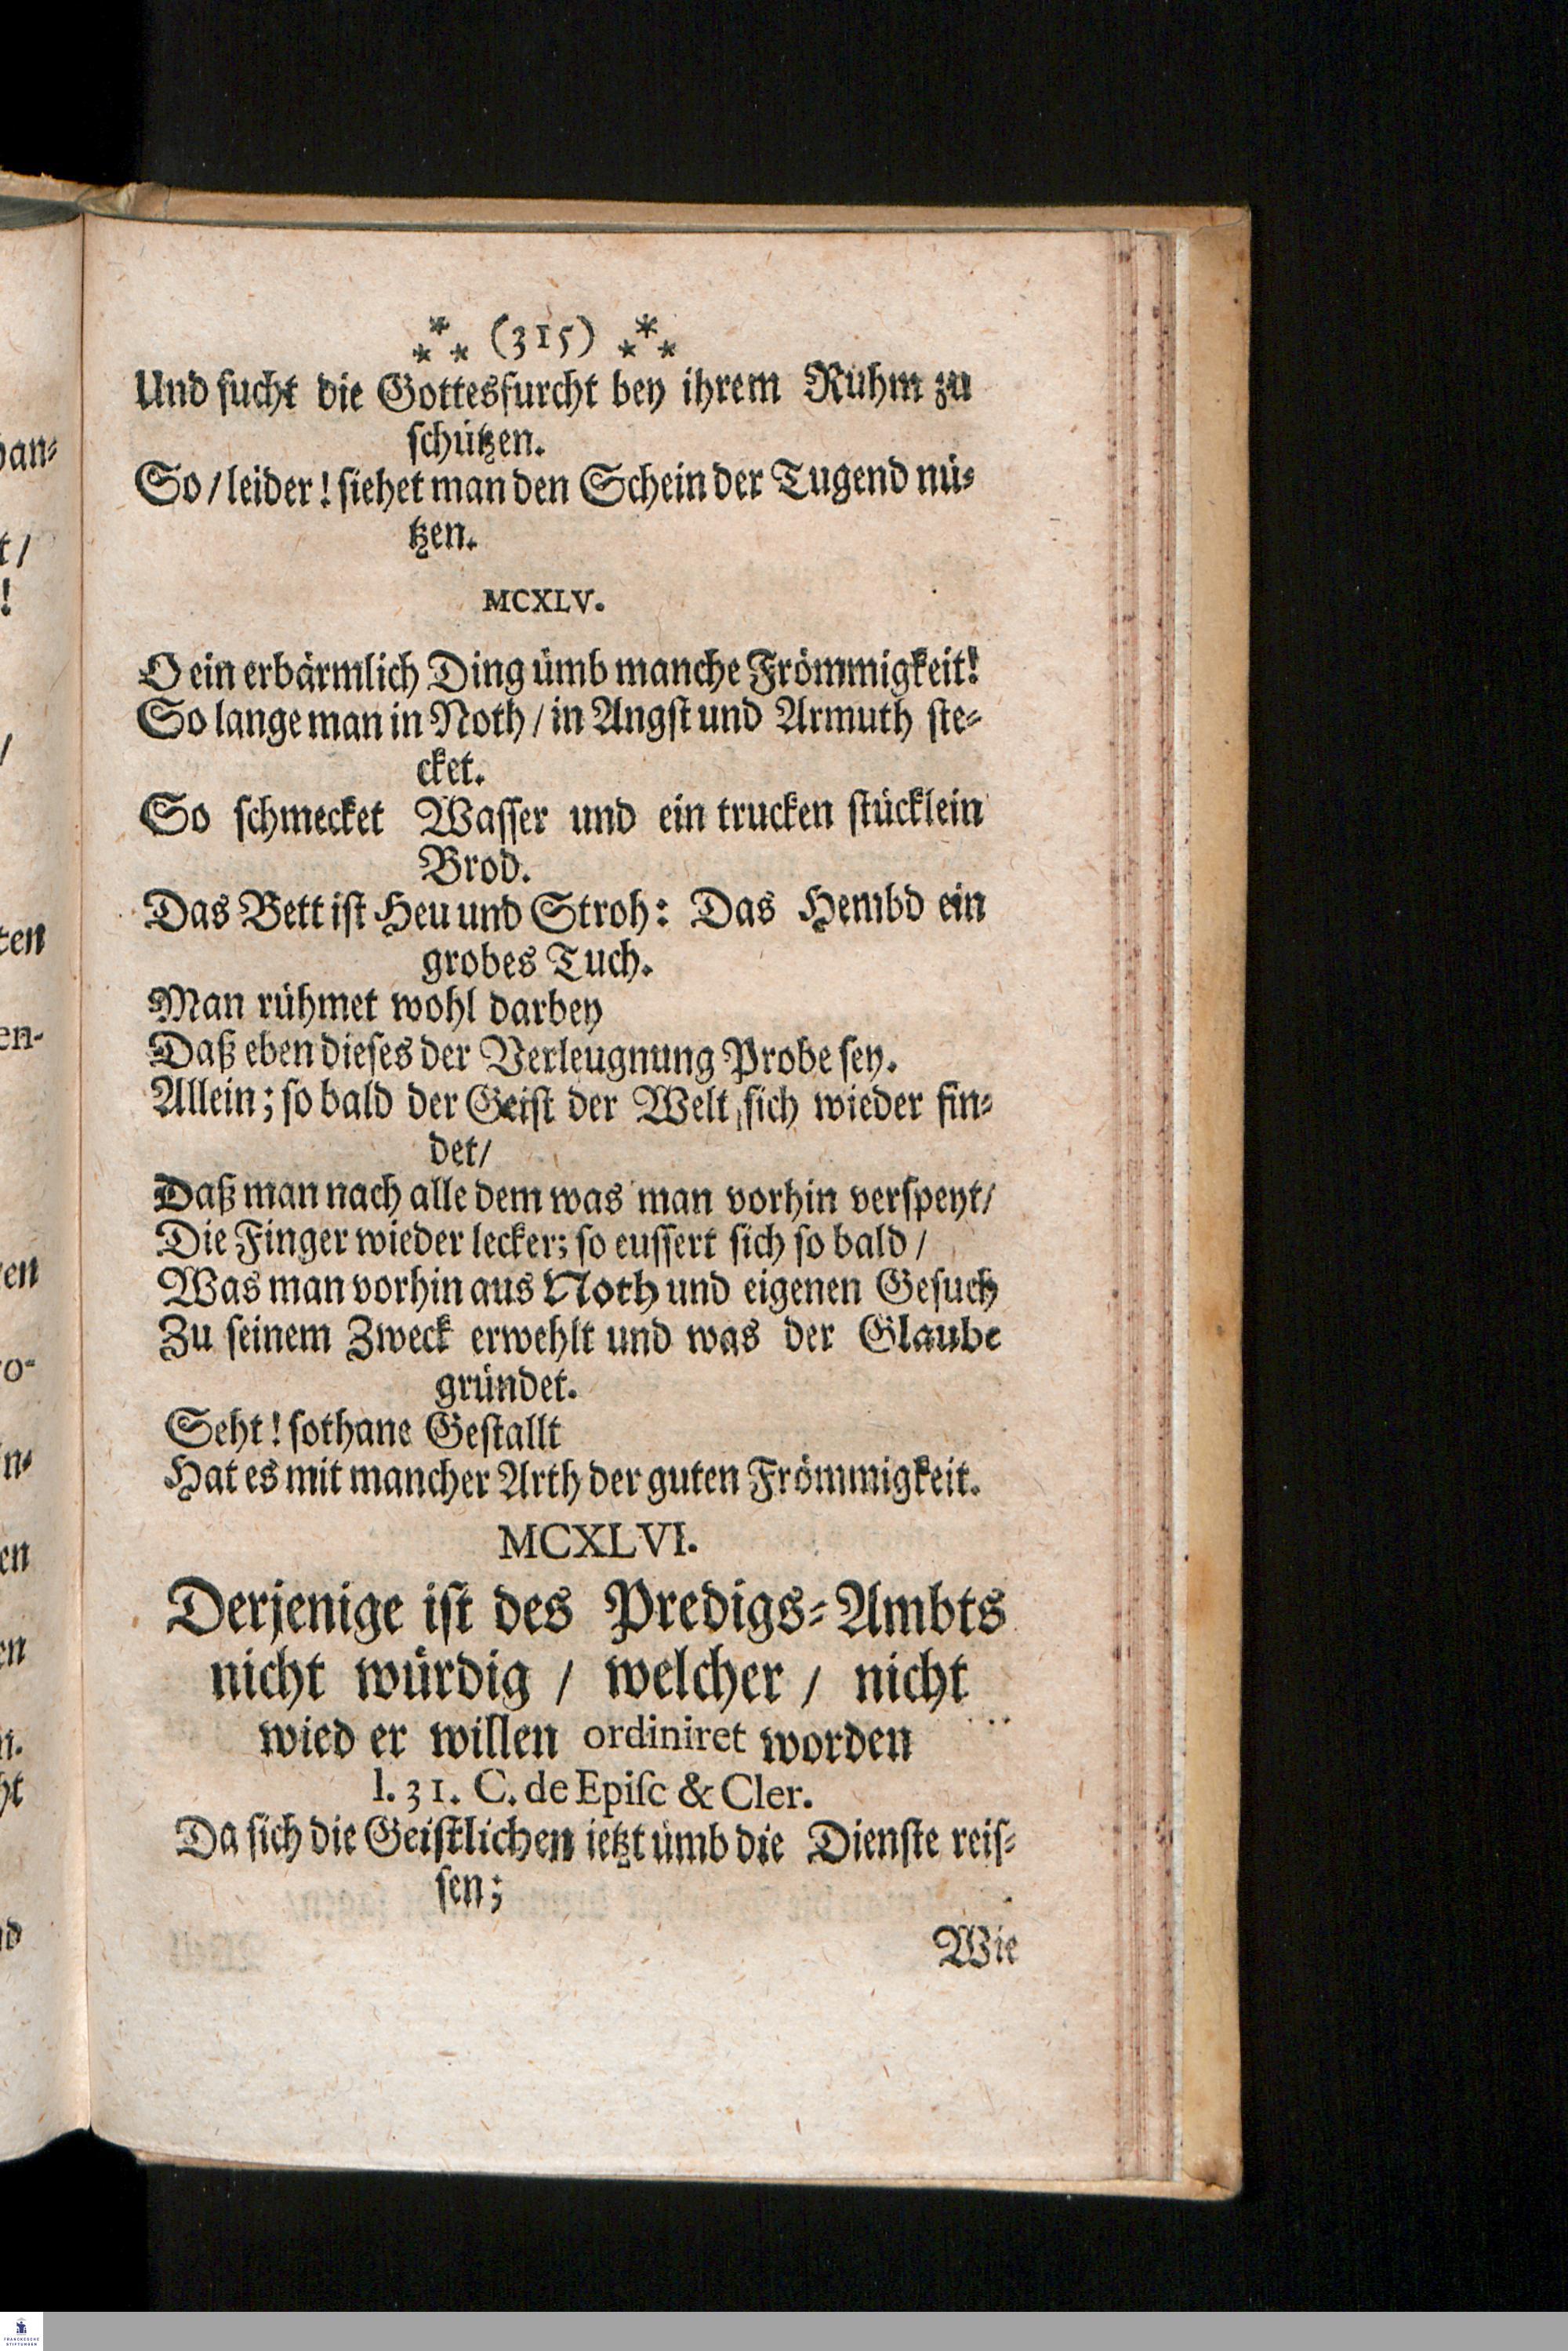 ⁂ (315) ⁂
Und sucht die Gottesfurcht bey ihrem Ruhm zu
schützen.
So / leider! siehet man den Schein der Tugend nü-
tzen.
MCXLV.
O ein erbärmlich Ding ümb manche Frömmigkeit!
So lange man in Noth / in Angst und Armuth ste-
cket.
So schmecket Wasser und ein trucken stücklein
Brod.
Das Bett ist Heu und Stroh: Das Hembd ein
grobes Tuch.
Man rühmet wohl darbey
Daß eben dieses der Verleugnung Probe sey.
Allein; so bald der Geist der Welt sich wieder fin-
det/
Daß man nach alle dem was man vorhin verspeyt/
Die Finger wieder lecker; so eussert sich so bald /
Was man vorhin aus Noth und eigenen Gesuch
Zu seinem Zweck erwehlt und was der Glaube
gründet.
Seht! sothane Gestallt
Hat es mit mancher Arth der guten Frömmigkeit.
MCXLVI.
Derjenige ist des Predigs-Ambts
nicht würdig / welcher / nicht
wied er willen ordiniret worden
l. 31. C. de Episc & Cler.
Da sich die Geistlichen ietzt ümb die Dienste reis-
sen;
Wie
FRANCKESCHE
STIFTUNGEN